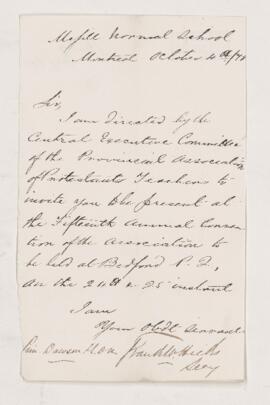 McGill Normal School
Montreal October 4th/78
Sir,
I am directed by the
Central Executive Committee
of the Provincial Association
of Protestant Teachers to
invite you to be present at
the Fifteenth Annual Conven
tion of the Association to
be held at Bedford P. Q,
on the 24th & 25 instant
I am
Your Obdt Servant
Prin. Dawson Frank W. Hicks
Secy